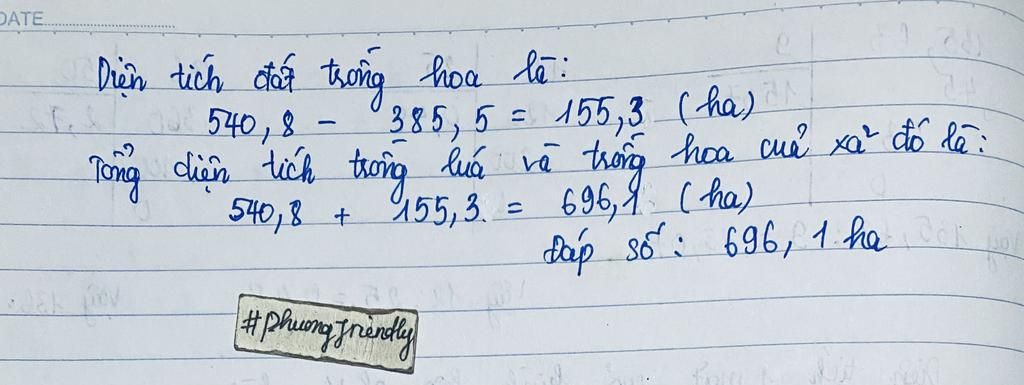 DATE
Diện tích đất trồng hoa là:
540,8 - 385,5 = 155,3 (ha)
Tổng diện tích trồng lúa và trồng hoa của xã đó là:
540,8 + 155,3 = 696,1 (ha)
Đáp số: 696,1 ha
#phuongfriendly